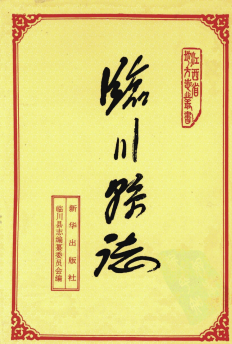 江西省
地方志丛书
臨川县志
新华出版社
临川县志编纂委员会编